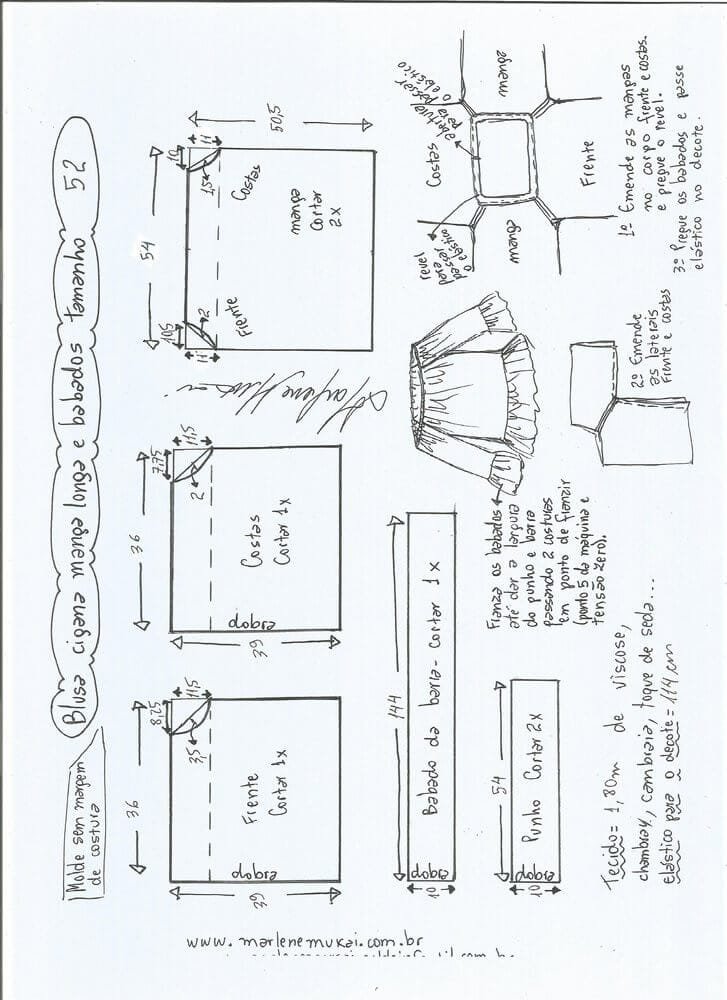 Blusa cigana manga longa e babados tamanho 52
Molde sem margem
de costura
36
8,25
11,5
3,5
Frente
Cortar 1x
dobra
39
36
7,75
11,5
2
Costas
Cortar 1x
dobra
39
54
10,5
11
2
Frente
10
11
1,5
Costas
manga
Cortar
2x
50,5
144
Babado da barra - cortar 1x
dobra
10
54
Punho Cortar 2x
dobra
10
Franza os babados
até dar a largura
do punho e barra
passando 2 costuras
em ponto de franzir
(ponto 5 da máquina e
tensão zero).
2º Emende
as laterais
frente e costas
manga
Costas
Frente
manga
abertura
para
passar
o elástico
revel
para
passar
o elástico
1º Emende as mangas
no corpo frente e costas.
e pregue o revel.
3º Pregue os babados e passe
elástico no decote.
Tecido = 1,80m de viscose,
chambray, cambraia, toque de seda...
elástico para o decote = 114 cm
www.marlenemukai.com.br